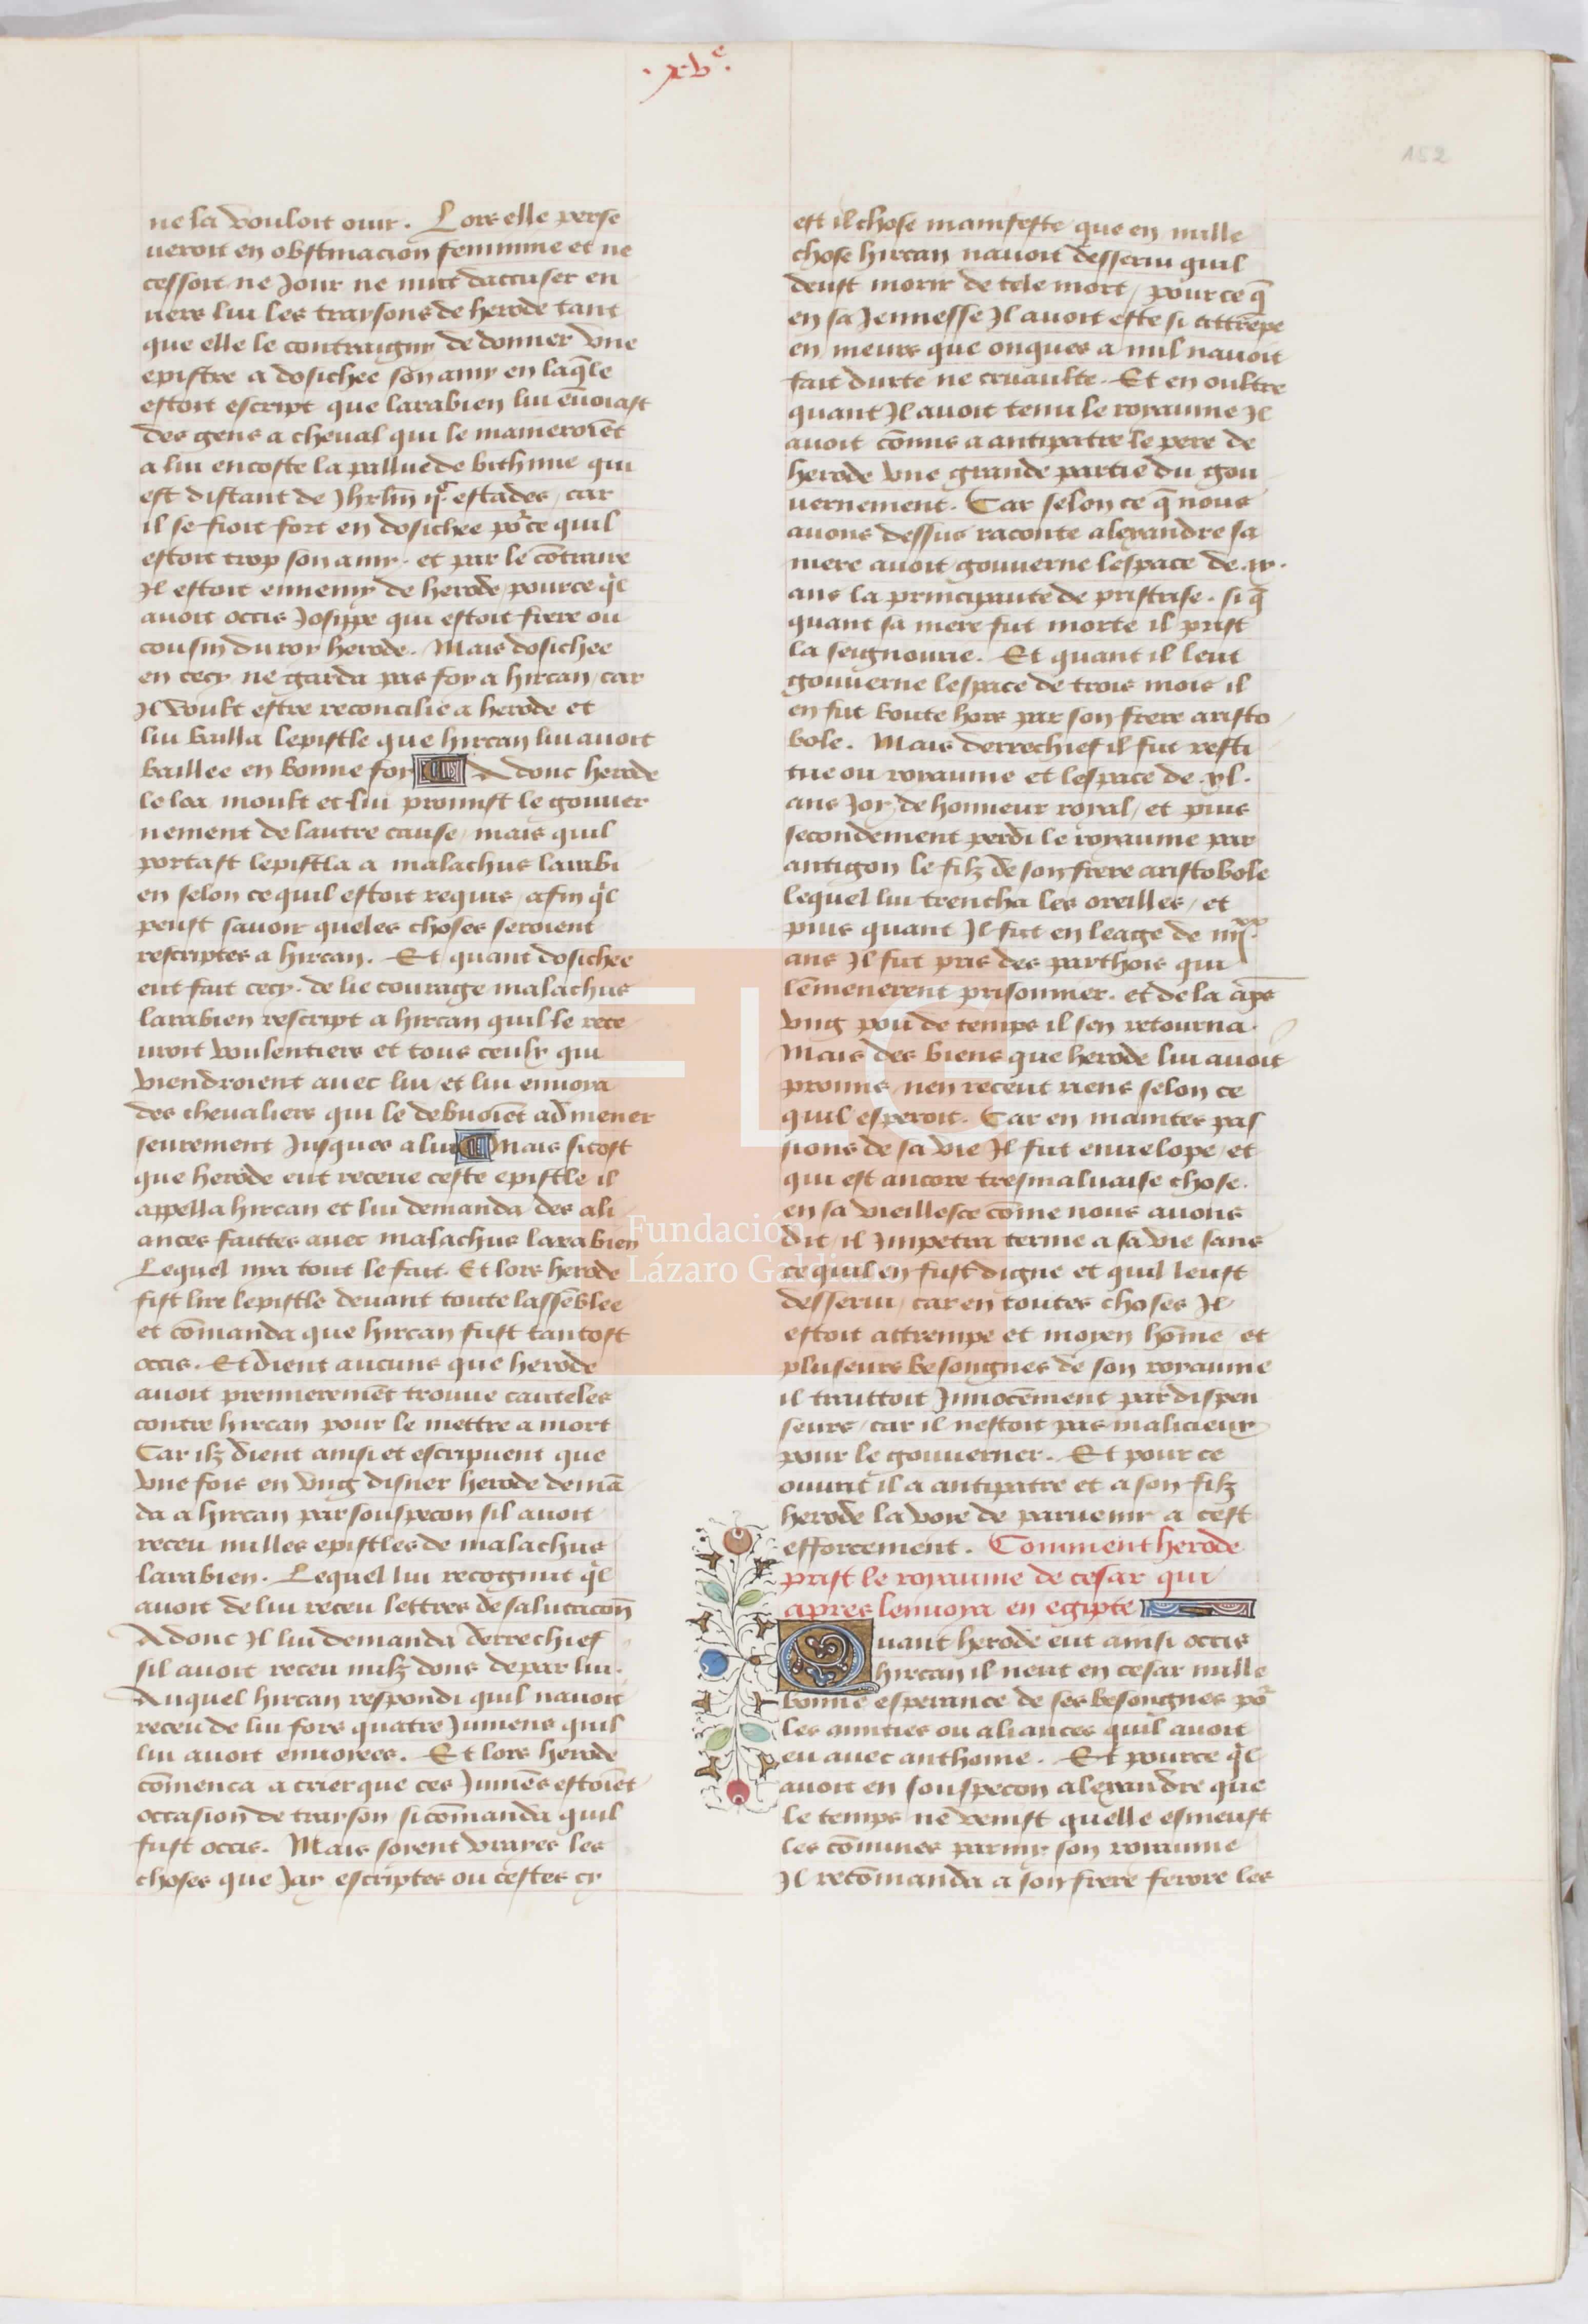 .xv^e.
152
ne la vouloit ouir. Lors elle perse
ueroit en obstinacion feminine et ne
cessoit ne Jour ne nuit daccuser en
uers lui les traysons de herode tant
que elle le contraigny de donner vne
epistre a dosichee son amy en laq̄le
estoit escript que larabien lui ēuoiast
des gens a cheual qui le maineroiēt
a lui encoste la pallue de bithinie qui
est distant de Jhrl̄m iij^c estades / car
il se fioit fort en dosichee po^r ce quil
estoit trop son amy. et par le cōtraire
Il estoit ennemy de herode / pource q̄l
auoit occis Josippe qui estoit frere ou
cousin du roy herode. Mais dosichee
en cecy ne garda pas foy a hircan / car
Il voult estre reconcilie a herode et
lui bailla lepistle que hircan lui auoit
baillee en bonne foy Adonc herode
le loa moult et lui promist le gouuer
nement de lautre cause / mais quil
portast lepistla a malachus larabi
en selon ce quil estoit requis / afin q̄l
peust sauoir queles choses seroient
rescriptes a hircan. Et quant dosichee
eut fait cecy. de lie courage malachus
larabien rescript a hircan quil le rece
uroit voulentiers et tous ceulx qui
viendroient auec lui / et lui enuoya
des cheualiers qui le debuoiēt ad mener
seurement Jusques a lui Mais si tost
que herode eut receue ceste epistle il
appella hircan et lui demanda des ali
ances faittes auec malachus larabien
Lequel nya tout le fait. Et lors herode
fist lire lepistle deuant toute lassēblee
et cōmanda que hircan fust tantost
occis. Et dient aucuns que herode
auoit premieremēt trouue cauteles
contre hircan pour le mettre a mort
Car ilz dient ainsi et escripuent que
vne fois en vng disner herode demā
da a hircan par souspecon sil auoit
receu nulles epistles de malachus
larabien. Lequel lui recognut q̄l
auoit de lui receu lettres de salutacoñ
Adonc Il lui demanda derrechief
sil auoit receu nulz dons de par lui.
Auquel hircan respondi quil nauoit
receu de lui fors quatre Jumens quil
lui auoit enuoiees. Et lors herode
cōmenca a crier que ces Jumēs estoiēt
occasion de trayson si cōmanda quil
fust occis. Mais soient vrayes les
choses que Jay escriptes ou cestes cy
est il chose manifeste que en nulle
chose hircan nauoit desserui quil
deust morir de tele mort / pource q̄
en sa Jennesse Il auoit este si attrēpe
en meurs que onques a nul nauoit
fait durte ne cruaulte. Et en oultre
quant Il auoit tenu le royaume Il
auoit cōmis a antipatre le pere de
herode vne grande partie du gou
uernement. Car selon ce q̄ nous
auons dessus raconte alexandre sa
mere auoit gouuerne lespace de .ix.
ans la principaute de pristrise. si q̄
quant sa mere fut morte il prist
la seignourie. Et quant il leut
gouuerne lespace de trois mois il
en fut boute hors par son frere aristo
bole. Mais derrechief il fut resti
tue ou royaume et lespace de .xl.
ans Joy de honneur royal / et puis
secondement perdi le royaume par
antigon le filz de son frere aristobole
lequel lui trencha les oreilles / et
puis quant Il fut en leage de iiij^xx.
ans Il fut pris des parthois qui
lēmenerent prisonnier. et de la ap̄s
vng pou de temps il sen retourna.
Mais des biens que herode lui auoit
promis / nen receut riens selon ce
quil esperoit. Car en maintes pas
sions de sa vie Il fut enuelope / et
qui est ancore tresmaluaise chose.
en sa vieillesce cōme nous auons
dit / il Jmpetra terme a sa vie sans
ce quil en fust digne et quil leust
desserui / car en toutes choses Il
estoit attrempe et moyen hōme / et
pluseurs besongnes de son royaume
il traittoit Jnnocēment par dispen
seurs / car il nestoit pas malicieux
pour le gouuerner. Et pour ce
ouurit il a antipatre et a son filz
herode la voie de paruenir a cest
efforcement. Comment herode
prist le royaume de cesar qui
apres lenuoya en egipte
Quant herode eut ainsi occis
hircan il neut en cesar nulle
bonne esperance de ses besongnes po^r
les amities ou aliances quil auoit
eu auec anthoine. Et pource q̄l
auoit en souspecon alexandre que
le temps ne venist quelle esmeust
les cōmunes parmy son royaume
Il recōmanda a son frere ferore les
Fundación
Lázaro Galdiano